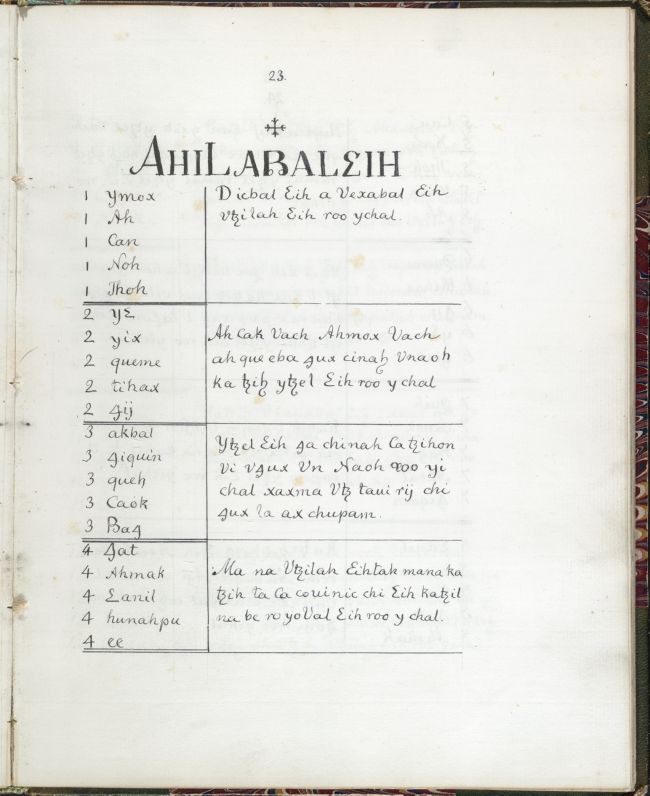 23.
AHILABALƐIH
1 ymox
1 Ah
1 Can
1 Noh
1 Thoh
Dicbal Ɛih a Vexabal Ɛih
Vꜩilah Ɛih roo ychal.
2 yƐ
2 yix
2 queme
2 tihax
2 ꜭij
Ah Cak Vach Ahmox Vach
ah que eba ꜭux cinaꜧ Vnaoh
ka ꜩiꜧ yꜩel Ɛih roo ychal
3 akbal
3 ꜭiquin
3 queꜧ
3 Caok
3 Baꜭ
Yꜩel Ɛih ꜭa chinah Caꜩihon
Vi vꜭux Vn Naoh roo yi
chal xaxma Vꜩ taui rij chi
ꜭux la ax chupam.
4 ꜭat
4 Ahmak
4 Ɛanil
4 hunahpu
4 ee
Ma na Vꜩilah Ɛihtak mana ka
ꜩih ta Ca couinic chi Ɛih kaꜩil
na be ro yoVal Ɛih roo ychal.